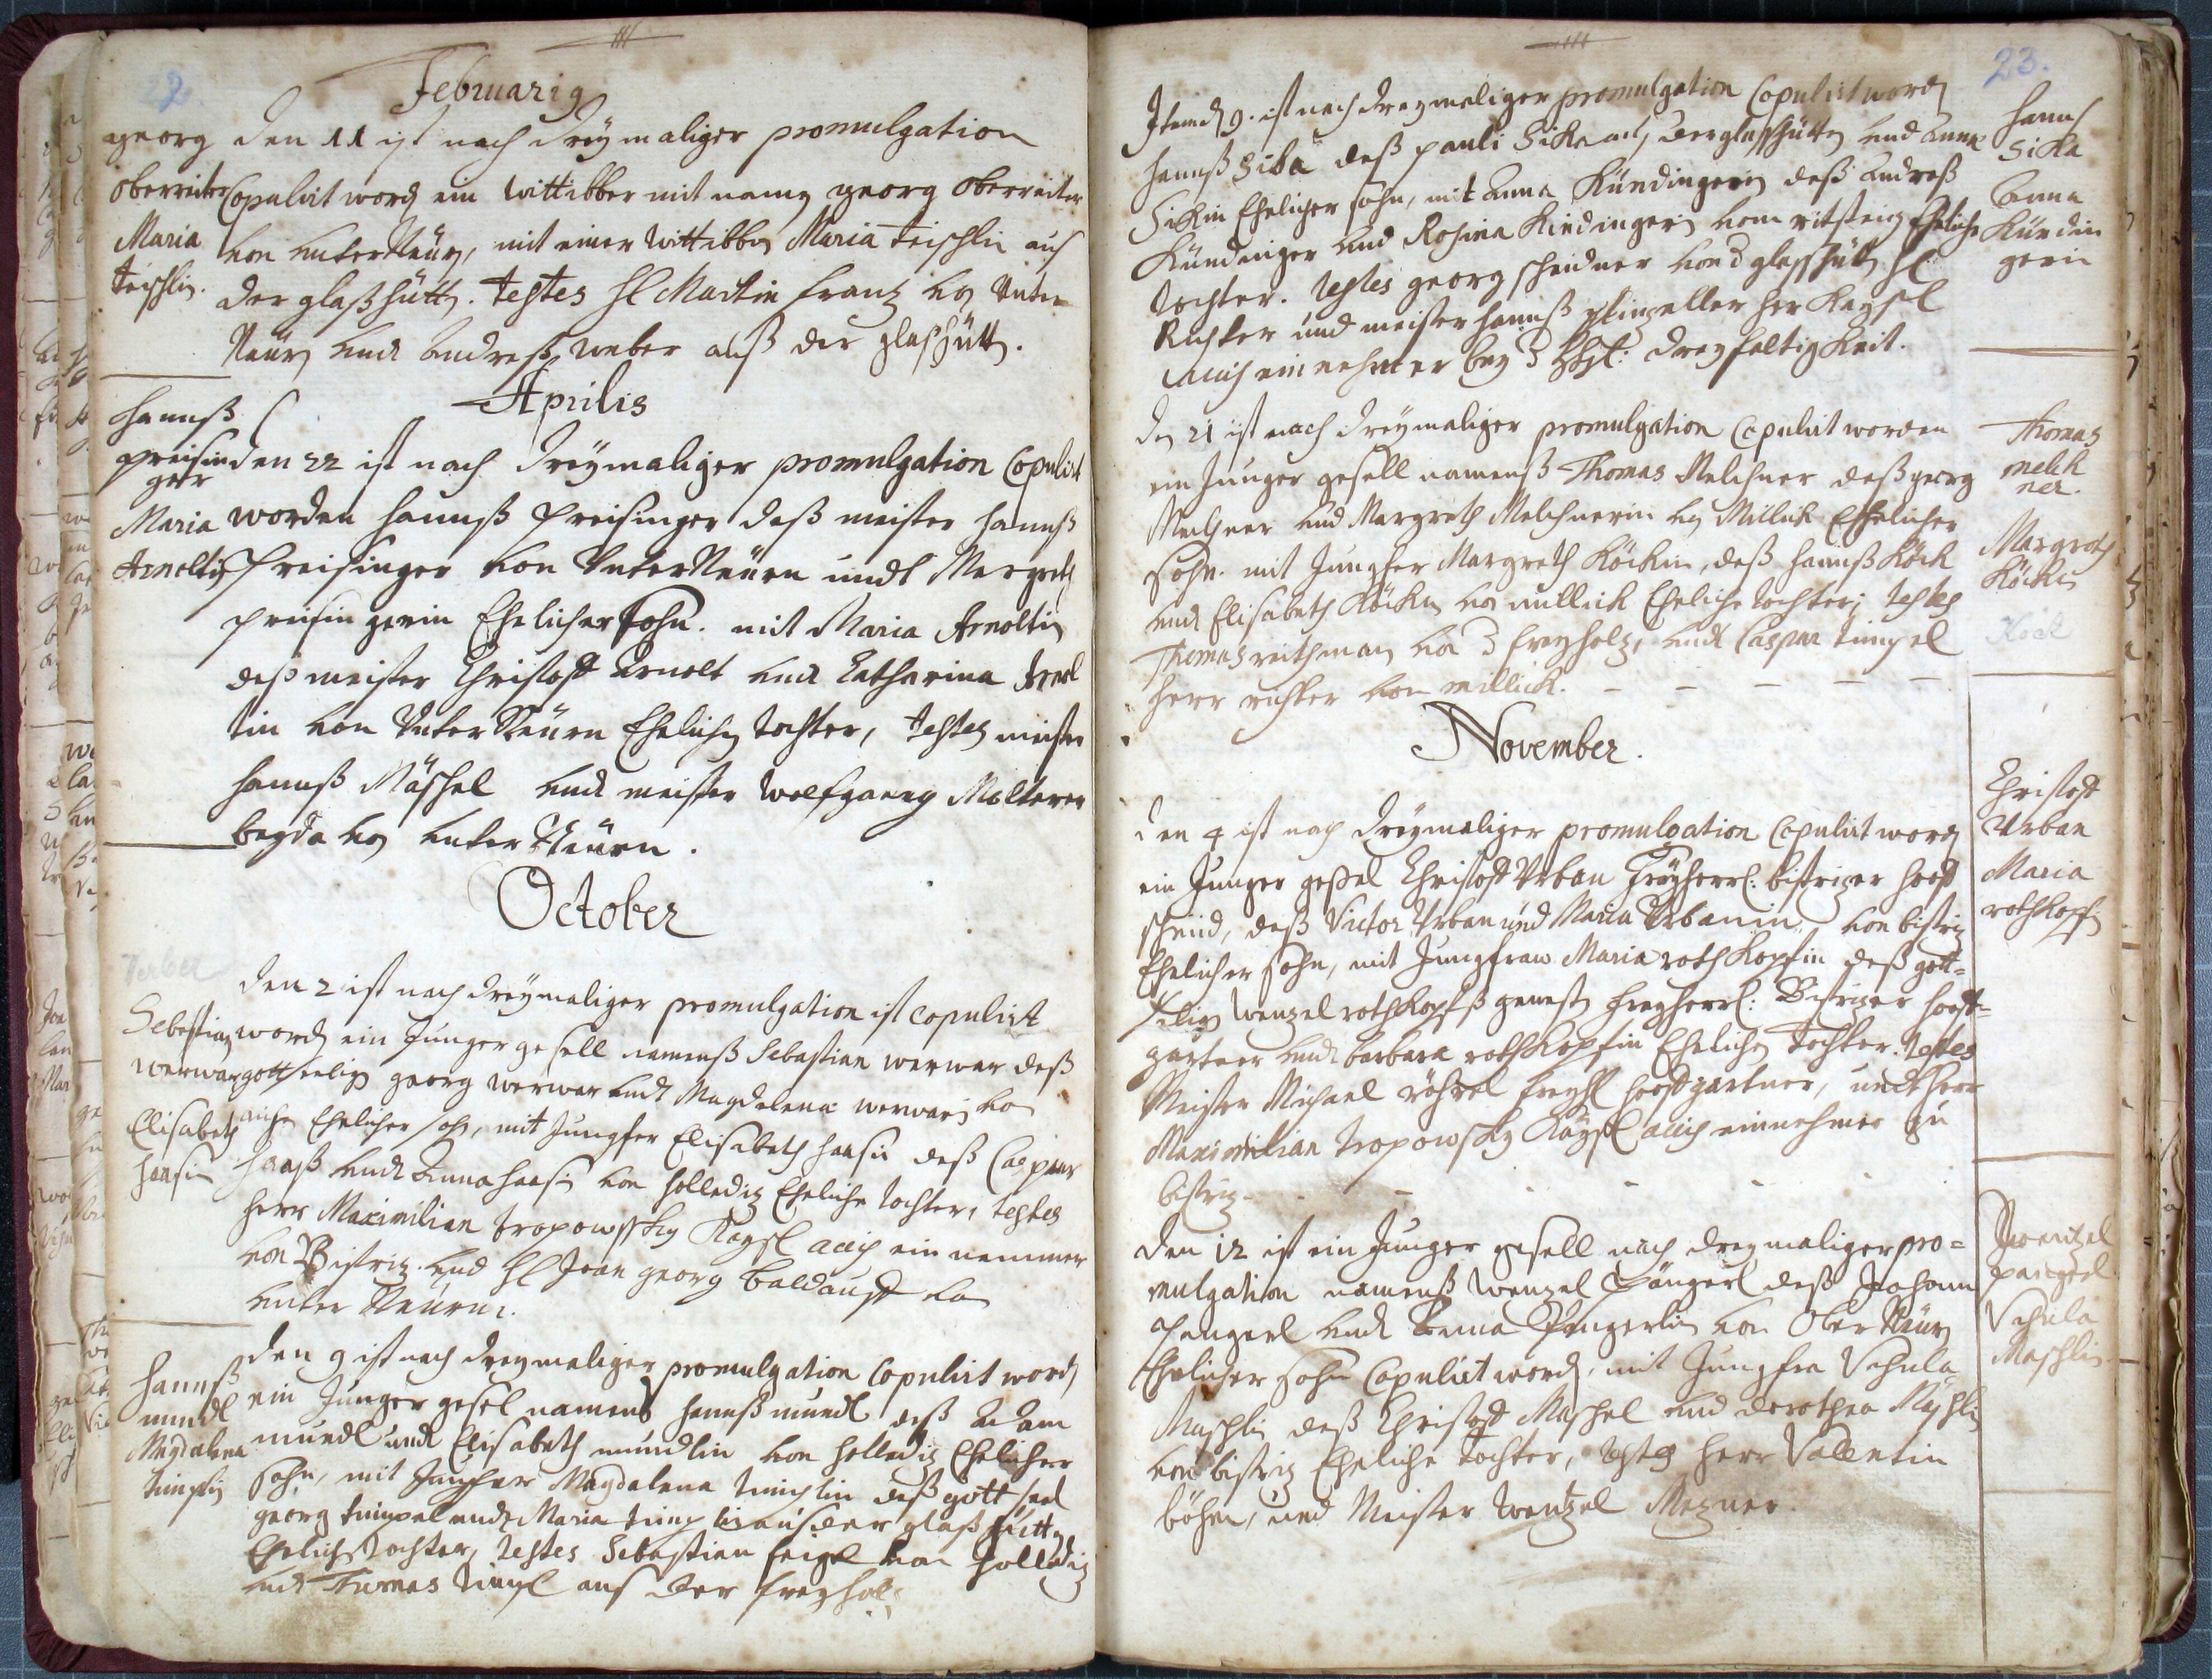 22.
Februarig
georg
oberreiter
Maria
teischlin.
den 11 ist nach dreÿmaliger promulgation
Copulirt word ein wittibber mit namen georg oberreiter
von unterNeürn, mit einer wittibben Maria teischlin auß
der glaßhütt. testes H Martin frantz von Unter
Neürn undt Andreß weber auß der glaßhütt.
Aprilis
hannß
preisin
ger
Maria
Arnoltin
den 22 ist nach dreÿmaliger promulgation Copulirt
worden hannß Preisinger deß meister hannß
Preisinger von UnterNeürn undt Margreth
preisingerin Ehelicher sohn. mit Maria Arnoltin
deß meister Christoff Arnolt undt Catharina Arnol
tin von UnterNeürn Eheliche tochter, testes meister
hannß Mäschel undt meister wolfgang Molterer
beyde von unterNeürn.
October
Sebastian
werwar
Elisabeth
haasin
den 2 ist nach dreÿmaliger promulgation ist copulirt
word ein Junger gesell namenß Sebastian werwar deß
gottseelig georg werwar undt Magdalena werwarin von
Ehelicher sohn, mit Jungfer Elisabeth haasin deß Caspar
haaß undt Anna haasin von holledig Eheliche tochter, testes
herr Maximilian tropowsky Kaysl accis ein nemmer
von Bistriz. und H Joan georg baldauff von
unter Neürn.
hannß
mundl
Magdalena
timplin
den 9 ist nach dreymaliger promulgation Copulirt word
ein Junger gesel namens hannß mundl deß Adam
mundl undt Elisabeth mundlin von holledig Ehelicher
sohn, mit Jungfer Magdalena timplin deß gott seel
georg timpel undt Maria timplin auß der glaßhütt
Eheliche tochter, testes Sebastian feigl von holledig
undt Thomas timpl auß der freyholtz
23.
Item d 9. ist nach dreymaliger promulgation Copulirt word
hannß Sika deß pauli Sika auß der glaßhütt und Anna
Sikin Ehelicher sohn, mit Anna Kündingerin deß Andreß
Kündinger und Rosina Kindingerin vom ritsteig Eheliche
tochter. testes georg scheidner von d glaßhütt H
Richter und meister hannß plinzeller her Kaysl
accis einnehmer bey d Hhl: dreyfaltigkeit.
hannß
Sika
Anna
Kündin
gerin
den 21 ist nach dreÿmaliger promulgation Copulirt worden
ein Junger gesell namenß Thomas Melchner deß georg
Melchner und Margreth Melchnerin von Millick Ehelicher
sohn. mit Jungfer Margreth Köckin, deß hannß Köck
undt Elisabeth Köckin von millick Eheliche tochter; testes
Thomas reithman von d freyholz, undt Caspar timpel
herr richter von millick.
Thomas
melch
ner.
Margreth
Köckin
Köck
November.
den 4 ist nach dreÿmaliger promulgation Copulirt word
ein Junger gesel Christoff Urban freÿherrl: bistrizer hoff
schmid, deß Victor Urban und Maria Urbanin von bistriz
Ehelicher sohn, mit Jungfraw Maria rothkopfin deß gott=
selig wenzel rothkopfß gewest freyherrl: Bistrizer hoff=
gartner undt barbara rothkopfin Eheliche tochter. testes
Meister Michael röhrl freyhl hoffgartner, undt herr
Maximilian tropowsky Kaysl accis einnehmer zu
bistriz.
Christoff
Urban
Maria
rothkopfin
den 12 ist ein Junger gesell nach dreymaliger pro=
mulgation namenß wenzel Pängerl deß Johann
pangerl undt Pangerlin von Ober Neürn
Ehelicher sohn Copulirt word, mit Jungfra Vrsula
Maschlin deß Christoff Maschel und dorothea Maschlin
von bistriz Eheliche tochter, testes herr Vallentin
böhm, und Meister wentzel Mezner.
Wentzel
pangerl
Vrsula
Maschlin